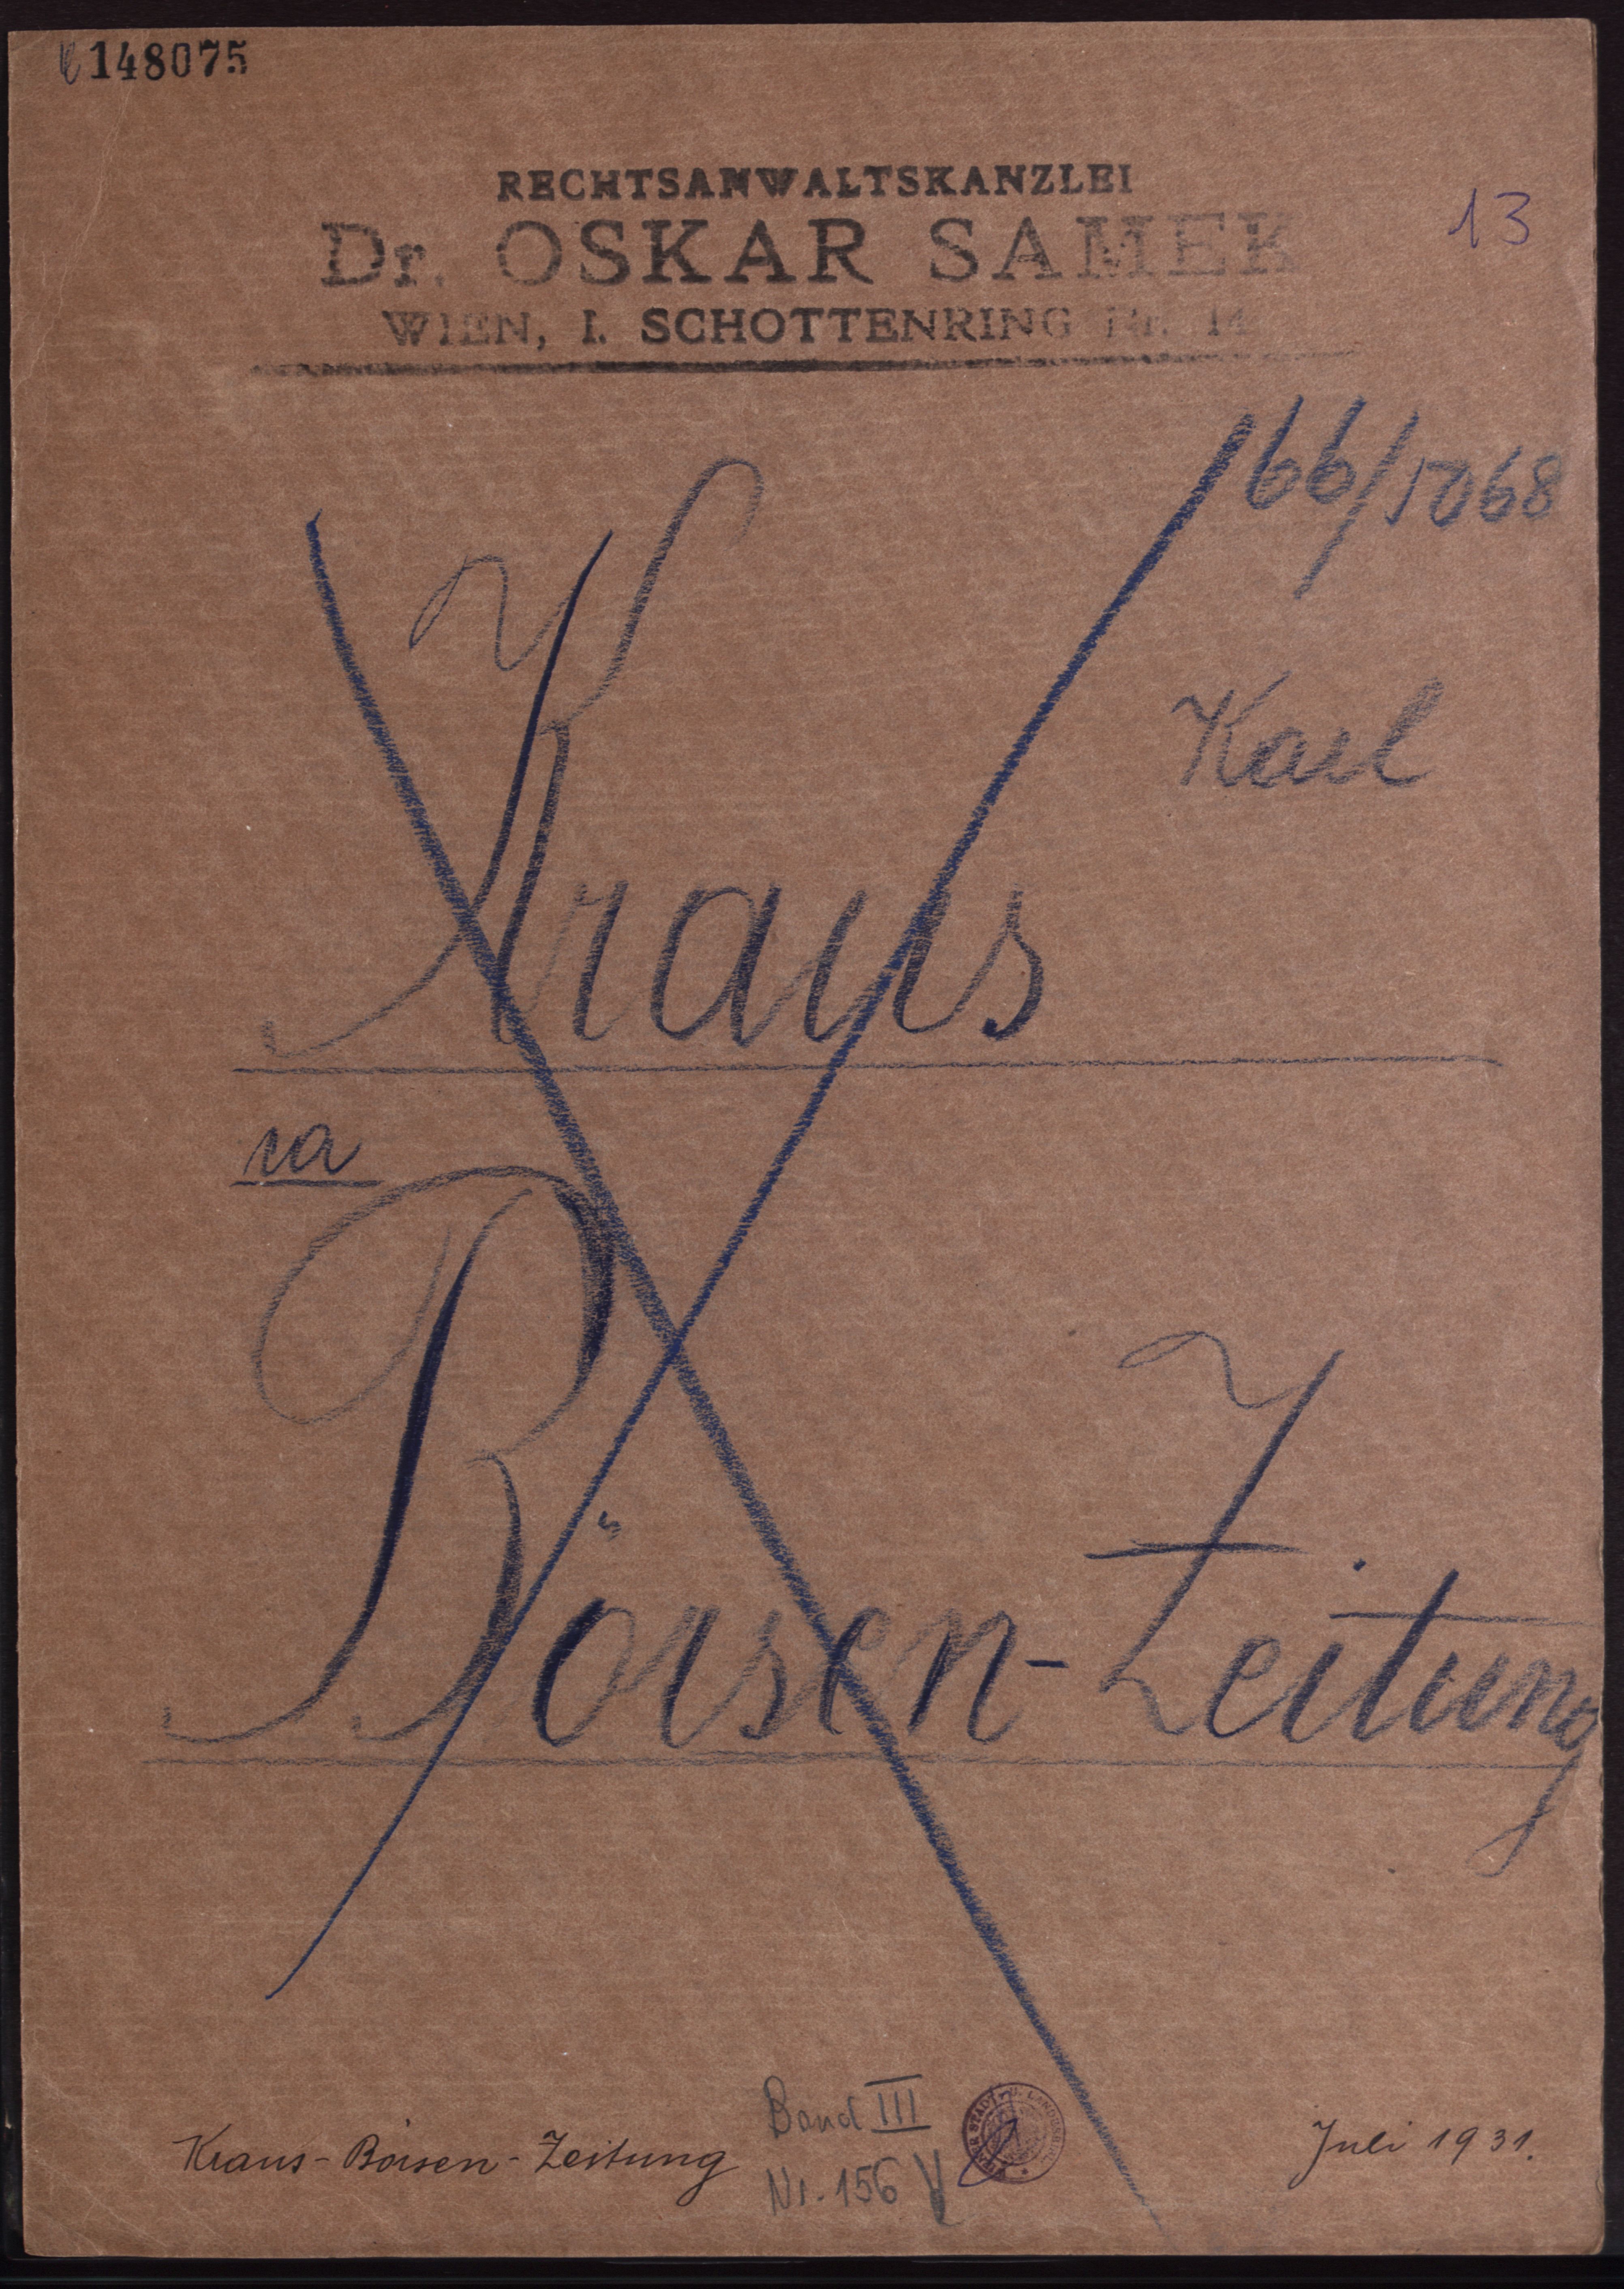 148075
RECHTSANWALTSKANZLEI
Dr. OSKAR SAMEK
WIEN, I. SCHOTTENRING Nr. 14
13
166/5068
Karl
Kraus
ra
Börsen-Zeitung
Band III
Kraus-Börsen-Zeitung
Nr. 156
Juli 1931.